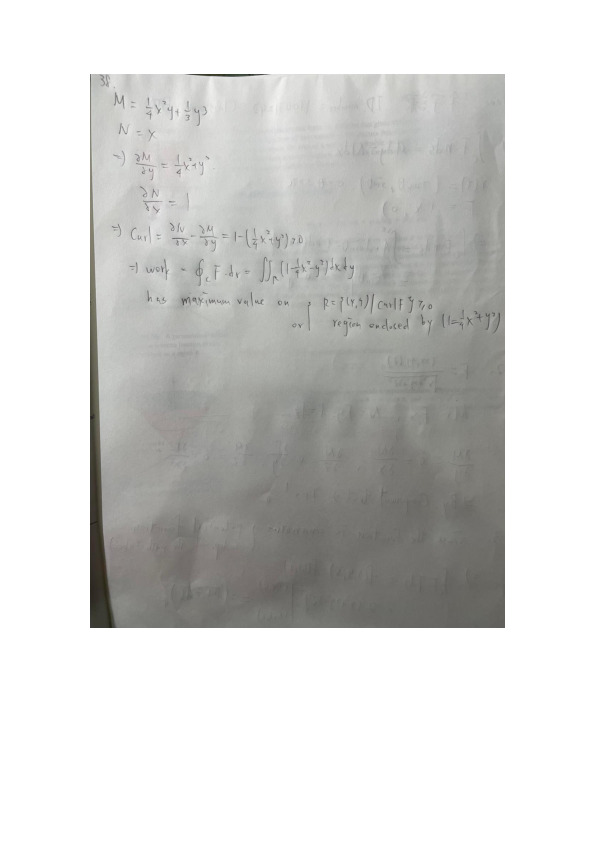 38.
M = 1/4 x²y + 1/3 y³
N = x
⇒) ∂M/∂y = 1/4 x² + y²
∂N/∂x = 1
⇒) Curl = ∂N/∂x - ∂M/∂y = 1 - (1/4 x² + y²) ≥ 0
⇒) work = ∮c F·dr = ∬R (1 - 1/4 x² - y²) dxdy
has maximum value on R = {(x,y) | Curl F ≥ 0
or region enclosed by (1 = 1/4 x² + y²)